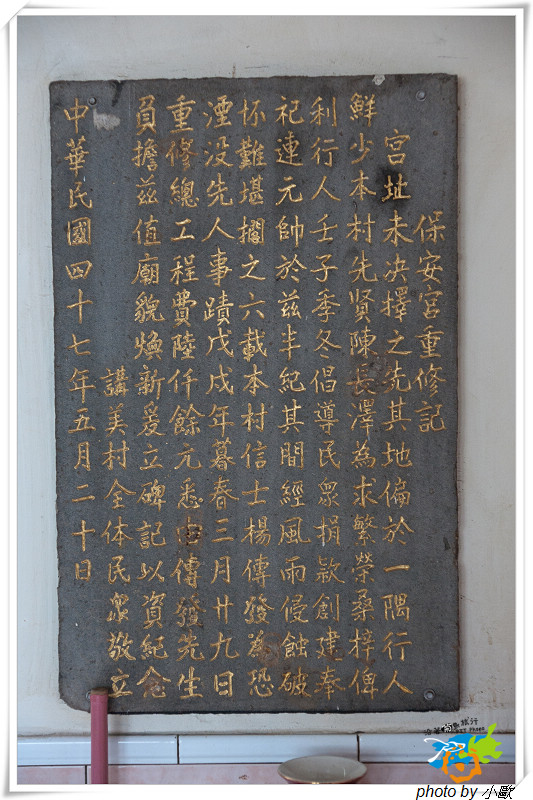 保安宮重修記
宮址未決擇之先其地偏於一隅行人
鮮少本村先賢陳長澤為求繁榮桑梓俾
利行人壬子季冬倡導民眾捐款創建奉
祀連元帥於茲半紀其間經風雨侵蝕破
坏難堪擱之六載本村信士楊傳發為恐
湮没先人事蹟戊戌年暮春三月廿九日
重修總工程費陸仟餘元悉由傳發先生
負擔茲值廟貌煥新爰立碑記以資紀念
講美村全体民眾敬立
中華民國四十七年五月二十日
photo by 小歐